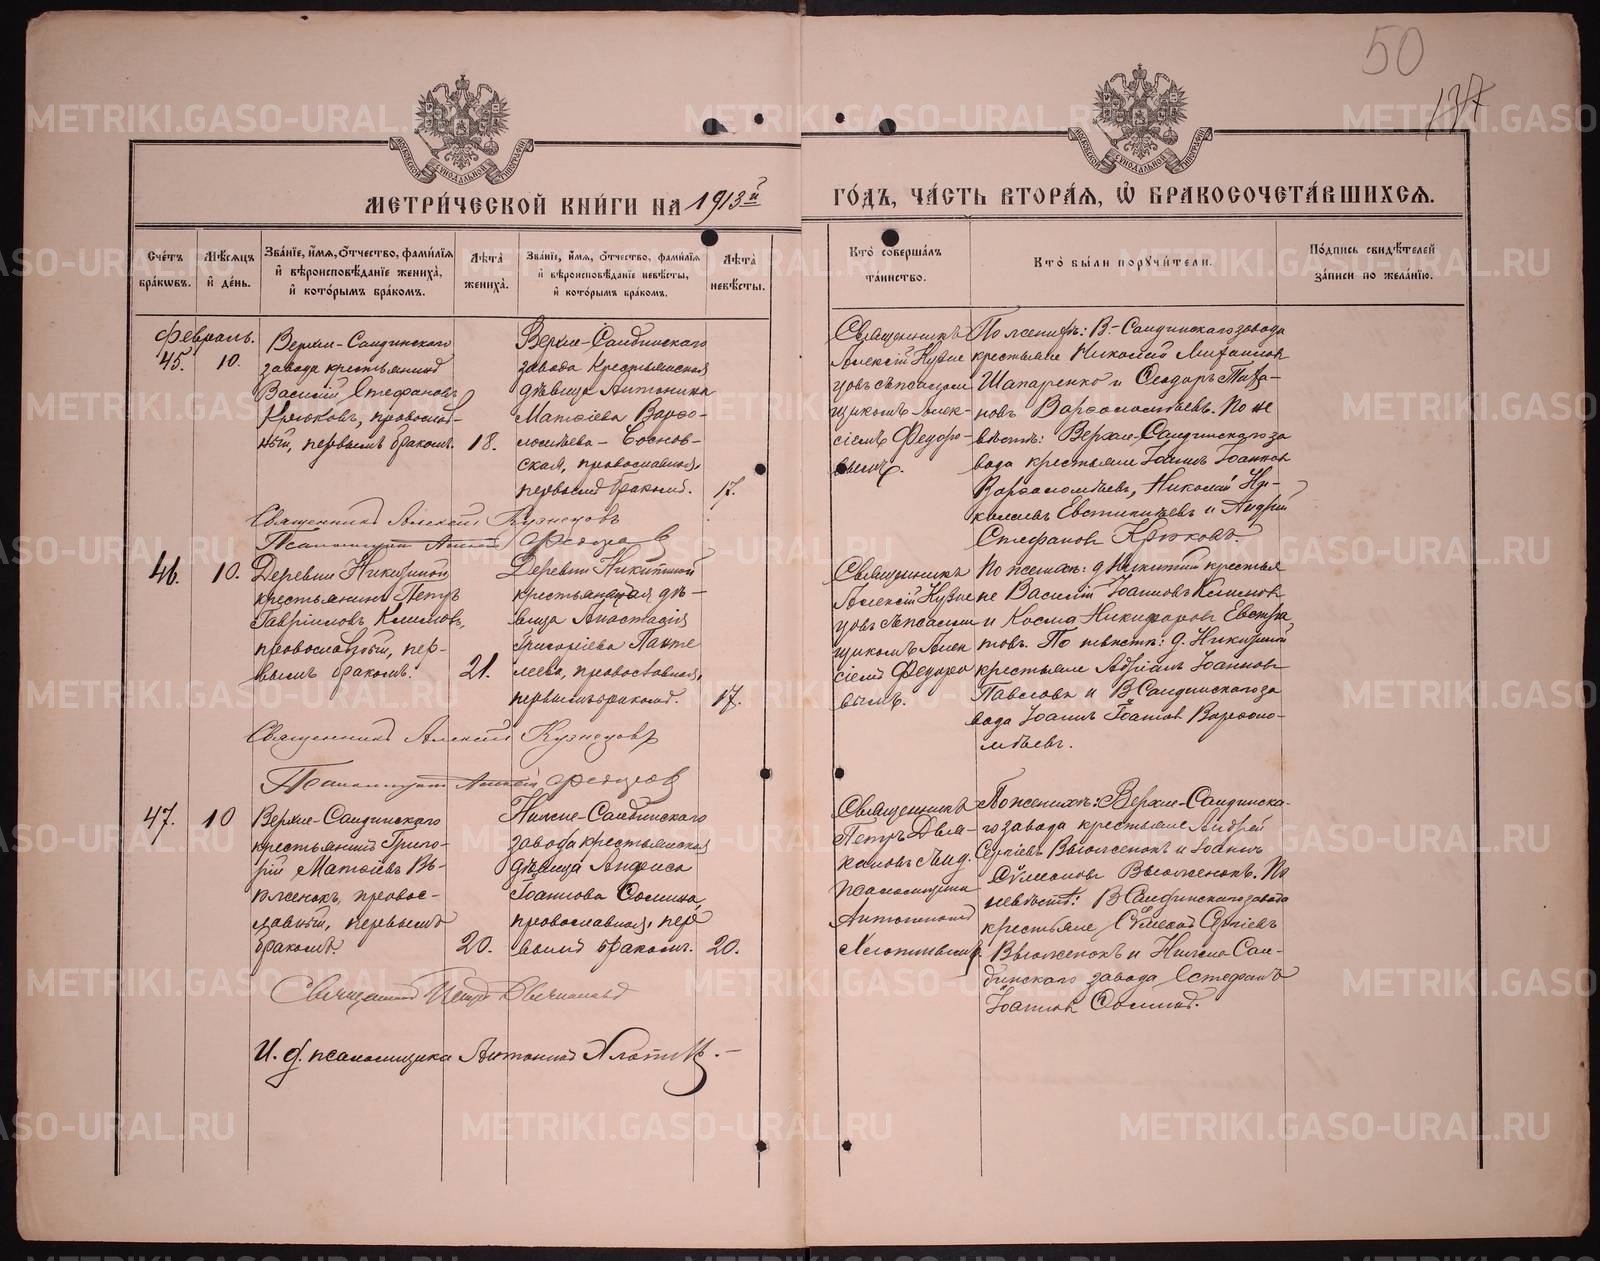 50
137
МЕТРИ́ЧЕСКОЙ КНИ́ГИ НА 1913й
ГО́ДЪ, ЧА́СТЬ ВТОРА́Я, Ѡ҆ БРАКОСОЧЕТА́ВШИХСЯ.
Сче́тъ бра́кѡвъ.
Мѣ́сяцъ и҆ де́нь.
Зва́нїе, и҆́мя, о҆́тчество, фами́лїя и҆ вѣроисповѣ́данїе жениха̀, и҆ кото́рымъ бра́комъ.
Лѣ́та жениха̀.
Зва́нїе, и҆́мя, о҆́тчество, фами́лїя и҆ вѣроисповѣ́данїе невѣ́сты, и҆ кото́рымъ бра́комъ.
Лѣ́та невѣ́сты.
Кто̀ соверша́лъ та́инство.
Кто̀ бы́ли порꙋчи́тели.
По́дпись свидѣ́телей за́писи по жела́нїю.
Февраль.
45.
10.
Верхне-Салдинскаго
завода крестьянинъ
Василій Стефановъ
Крюковъ, православ-
ный, первымъ бракомъ.
18.
Верхне-Салдинскаго
завода крестьянская
дѣвица Антонина
Матѳіева Варѳо-
ломѣева-Соснов-
ская, православная,
первымъ бракомъ.
17.
Священникъ
Алексій Кузне
цовъ съ псалом
щикомъ Алек-
сіемъ Федоро-
вымъ.
По женихѣ: В.-Салдинскаго завода
крестьяне Николай Михаиловъ
Шапаренко и Ѳеодоръ
Варѳоломѣевъ. По не
вѣстѣ: Верхне-Салдинскаго за
вода крестьяне Іоаннъ Іоанновъ
Варѳоломѣевъ, Николай Ни-
колаевъ и Андрей
Стефановъ Крюковъ.
Священникъ Алексій Кузнецовъ
Псаломщикъ Алексій Федоровъ
46.
10.
Деревни Никитиной
крестьянинъ Петръ
Гавріиловъ Климовъ,
православный, пер-
вымъ бракомъ.
21.
Деревни Никитиной
крестьянская дѣ-
вица Анастасія
Григоріева Панте
леева, православная,
первымъ бракомъ.
17.
Священникъ
Алексій Кузне
цовъ съ псалом
щикомъ Алек
сіемъ Федоро
вымъ.
По женихѣ: д. Никитиной крестья
не Василій Іоанновъ Климовъ
и Косма Никифоровъ Евстра
товъ. По невѣстѣ: д. Никитиной
крестьяне Адріанъ Іоанновъ
Павловъ и В Салдинскаго за
вода Іоаннъ Іоанновъ Варѳоло-
мѣевъ.
Священникъ Алексій Кузнецовъ
Псаломщикъ Алексій Федоровъ
47.
10
Верхне-Салдинскаго
крестьянинъ Григо-
рій Матѳіевъ Вь-
юженокъ, правос-
лавный, первымъ
бракомъ
20.
Нижне-Салдинскаго
завода крестьянская
дѣвица Анфиса
Іоаннова Сомина,
православная, пер
вымъ бракомъ.
20.
Священникъ
Петръ
и.д.
псаломщика
Антониномъ
По женихѣ: Верхне-Салдинска-
го завода крестьяне Андрей
Сергіевъ Вьюженокъ и Іоаннъ
Сѵмеоновъ Вьюженокъ. По
невѣстѣ: В Салдинскаго завода
крестьяне Сѵмеонъ Сергіевъ
Вьюженокъ и Нижне-Сал-
динскаго завода Стефанъ
Іоанновъ Соминъ.
Священникъ Петръ
И. д. псаломщика Антонинъ
METRIKI.GASO-URAL.RU